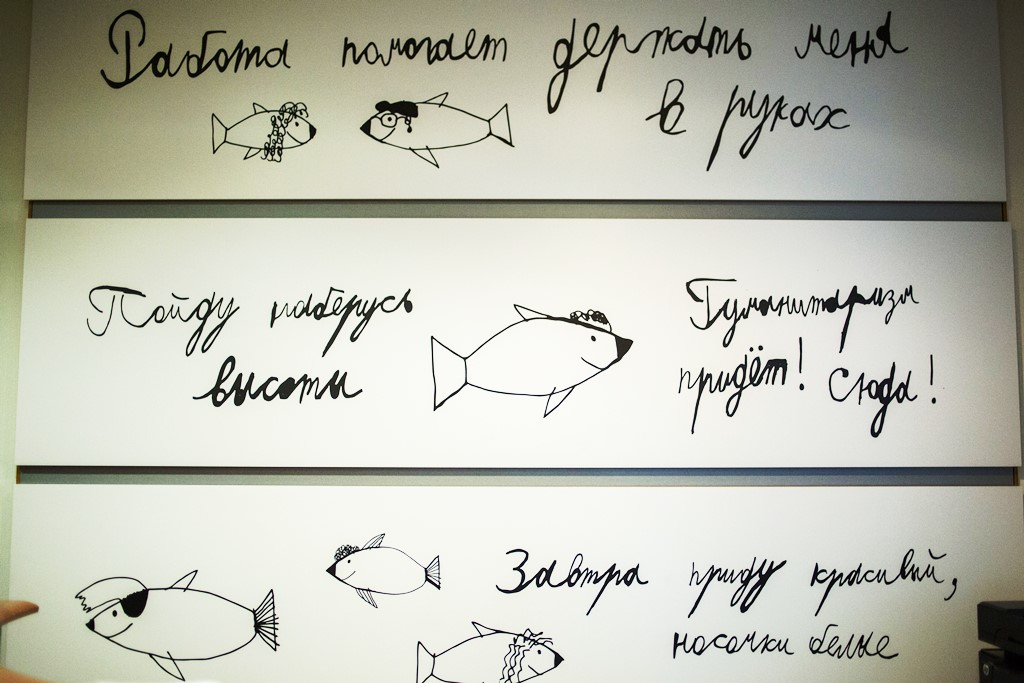 Работа помогает держать меня
в руках
Пойду наберусь
высоты
Гуманитаризм
придёт! Сюда!
Завтра приду красивый,
носочки белые